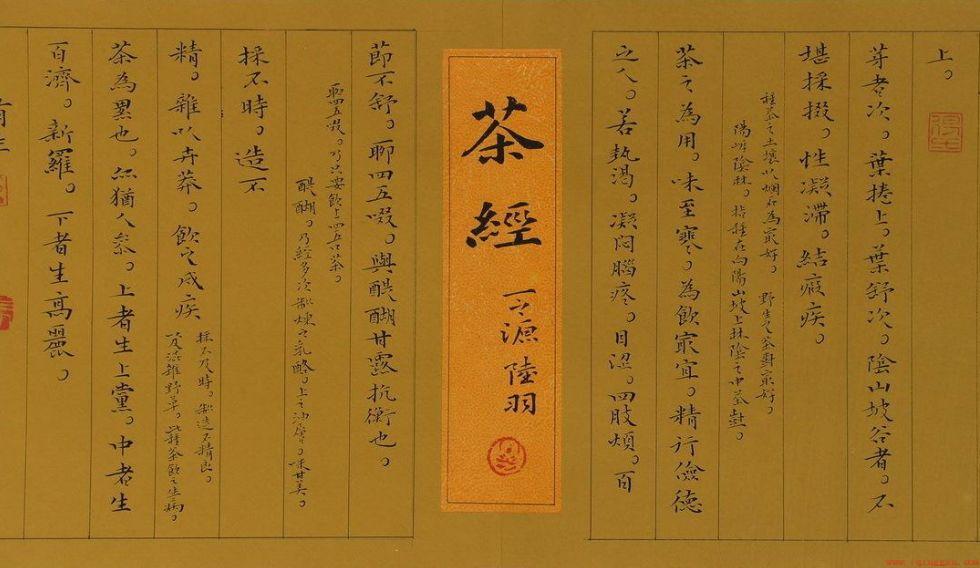 上。
芽者次。葉捲上。葉舒次。陰山坡谷者。不
堪採掇。性凝滯。結瘕疾。
種茶之土壤以爛石為最好。野生之茶樹最好。
陽崖陰林。指種在向陽山坡上林陰之中茶樹。
茶之為用。味至寒。為飲最宜。精行儉德
之人。若熱渴。凝悶腦疼。目澀。四肢煩。百
茶經
一之源 陸羽
節不舒。聊四五啜。與醍醐甘露抗衡也。
四五啜。乃只要飲上四五口茶。
醍醐。乃經多次制煉之乳酪。上之油層。味甘美。
採不時。造不
精。雜以卉莽。飲之成疾
採不及時。製造不精良。
及混雜野草。此種茶飲之生病。
茶為異也。亦猶人參。上者生上黨。中者生
百濟。新羅。下者生高麗。